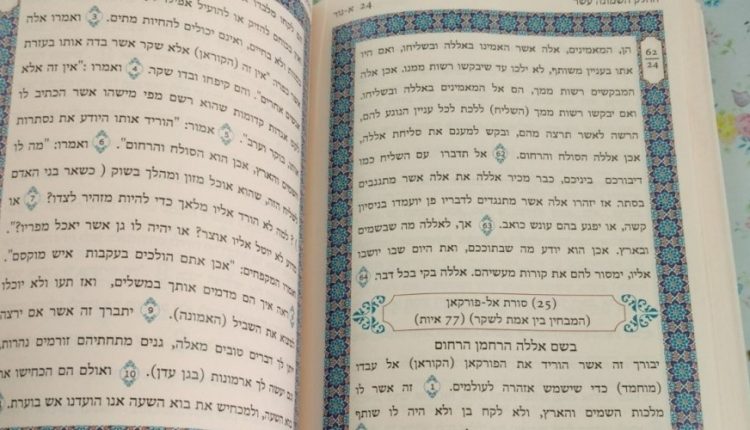 החלק השמונה עשר
א-נור 24
62
24
הן, המאמינים, אלה אשר האמינו באללה ובשליחו, ואם היו
אתו בעניין משותף, לא ילכו עד שיבקשו רשות ממנו. אכן אלה
המבקשים רשות ממך, הם אל המאמינים באללה ובשליחו.
ואם יבקשו רשות ממך (השליח) ללכת לכל עניין הנוגע להם,
הרשה לאשר תרצה מהם, ובקש למענם את סליחת אללה,
אכן אללה הסולח והרחום. 62 אל תדברו עם השליח כמו
דיבורכם ביניכם, כבר מכיר אללה את אלה אשר מתגנבים
בסתר. אז יזהרו אלה אשר מתנגדים לדבריו פן יועמדו בניסיון
קשה, או יפגע בהם עונש כואב. 63 אך, לאללה מה שבשמים
ובארץ. אכן הוא יודע מה שבתוככם, ואת היום שבו יושבו
אליו, ימסור להם את קורות מעשיהם. אללה בקי בכל דבר. 64
(25) סורת אל-פורקאן
(המבחין בין אמת לשקר) (77 איות)
בשם אללה הרחמן הרחום
יבורך זה אשר הוריד את הפורקאן (הקוראן) אל עבדו
(מוחמד) כדי שישמש אזהרה לעולמים. 1 זה אשר לו
מלכות השמים והארץ, ולא לקח בן ולא היה לו שותף
מלבדו
להזיק או להועיל אפילו
ולא בחיים, ואינם יכולים להחיות מתים. 3 ואמרו אלה
אשר כפרו: "אין זה (הקוראן) אלא שקר אשר בדה אותו בעזרת
אנשים אחרים". והם קיפחו ובדו שקר. 4 ואמרו: "אין זה אלא
אגדות קדומות שהוא רשם מפי מישהו אשר הכתיב לו
בוקר וערב". 5 אמור: "הוריד אותו היודע את נסתרות
השמים והארץ, אכן הוא הסולח והרחום". 6 ואמרו: "מה לו
לשליח הזה, שהוא אוכל מזון ומהלך בשוק ( כשאר בני האדם
) ? למה לא הורד אליו מלאך כדי להיות מזהיר לצדו? 7 או
מדוע לא יוטל אליו אוצר? או יהיה לו גן אשר יאכל מפריו?".
ואמרו המקפחים: "אכן אתם הולכים בעקבות איש מוקסם".
ראה איך הם מדמים אותך במשלים, ואז תעו ולא יוכלו
למצוא את השביל (האמונה). 9 יתברך זה אשר אם ירצה
יתן לך דברים טובים מאלה, גנים מתחתיהם זורמים נהרות,
וגם יעשה לך ארמונות (בגן עדן). 10 ואולם הם הכחישו את
בוא השעה, ולמכחיש את בוא השעה אנו הועדנו אש בוערת.